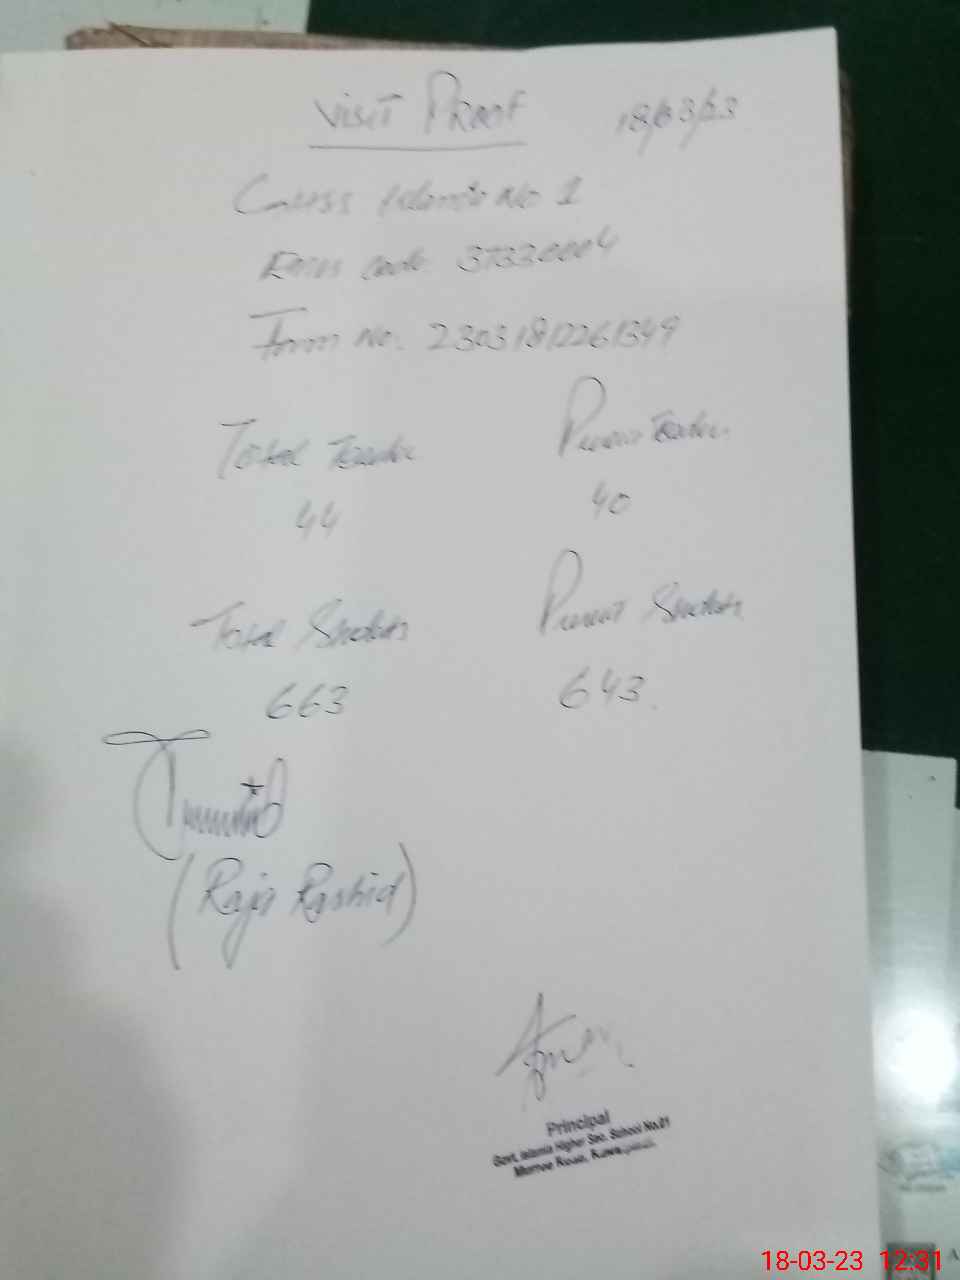 Visit Proof 18/03/23
GHSS Islamia No 1
Emis Code. 37320004
Form No. 23031812261349
Total Teacher Present Teacher.
44 40
Total Students Present Students
663 643.
(Raja Rashid)
Principal
Govt. Islamia Higher Sec. School No.01
Murree Road, Rawalpindi.
18-03-23 12:31